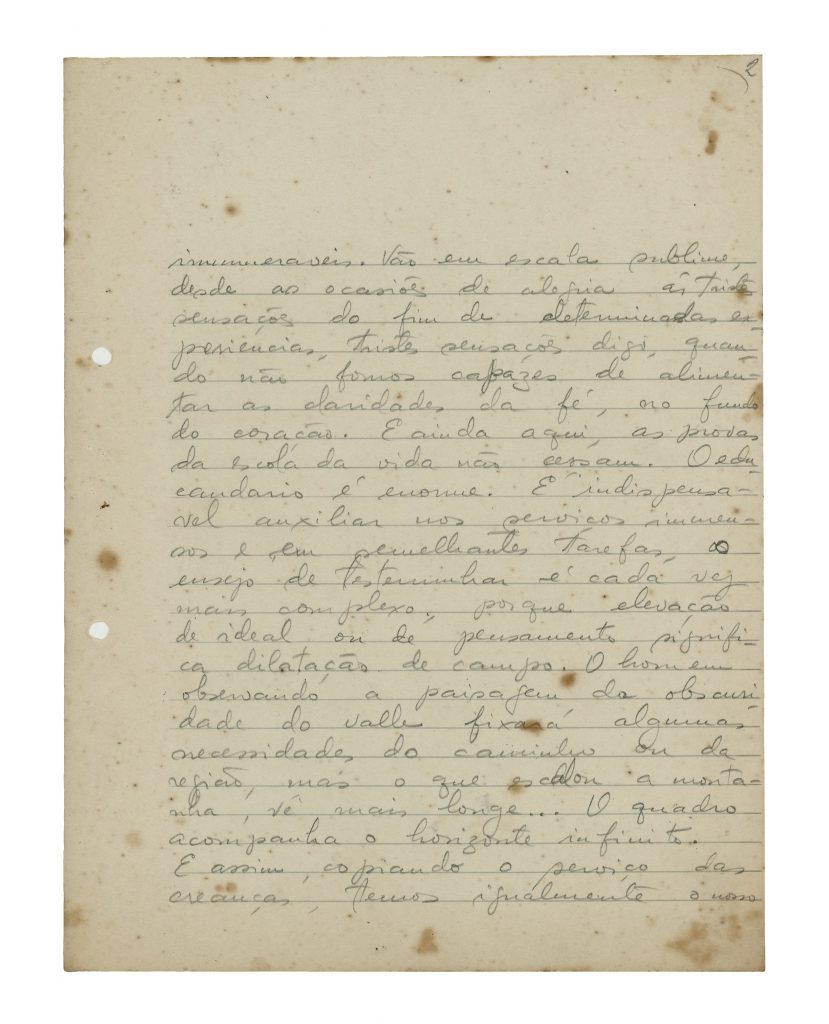 2
immumeraveis. Vão em escala sublime,
desde as ocasiões de alegria ás tristes
sensações do fim de determinadas ex-
periencias, tristes sensações digo, quan-
do não fomos capazes de alimen-
tar as claridades da fé, no fundo
do coração. E ainda aqui, as provas
da escola da vida não cessam. O edu
candario é enorme. É indispensa-
vel auxiliar nos serviços immen-
sos e em semelhantes tarefas, o
ensejo de testeminhar é cada vez
mais complexo, porque elevação
de ideal ou de pensamento signifi-
ca dilatação de campo. O homem
observando a paisagem da obscuri
dade do valle fixará algumas
necessidades do caminho ou da
região, mas o que escalou a monta-
nha, vê mais longe... O quadro
acompanha o horizonte infinito.
E assim, copiando o serviço das
creanças, temos igualmente o nosso